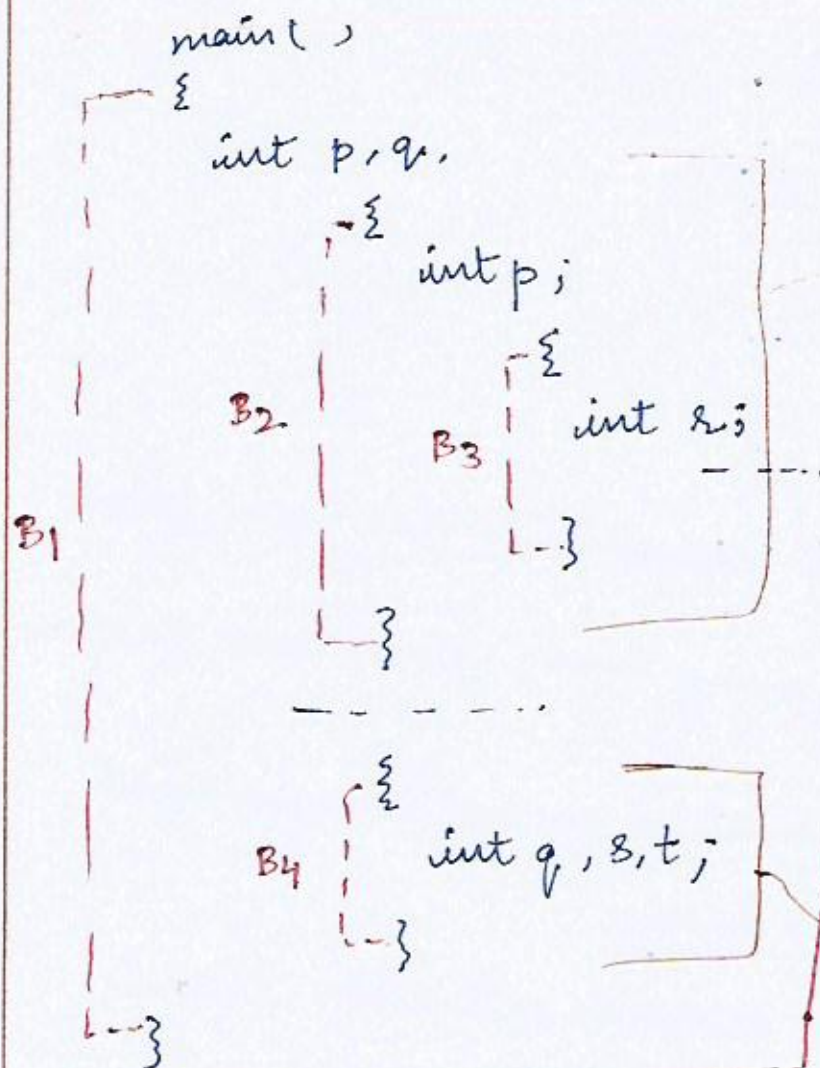 main( )
{
int p, q,
{
int p;
{
B2
int r;
B3
B1
}
}
{
B4
int q, s, t;
}
}